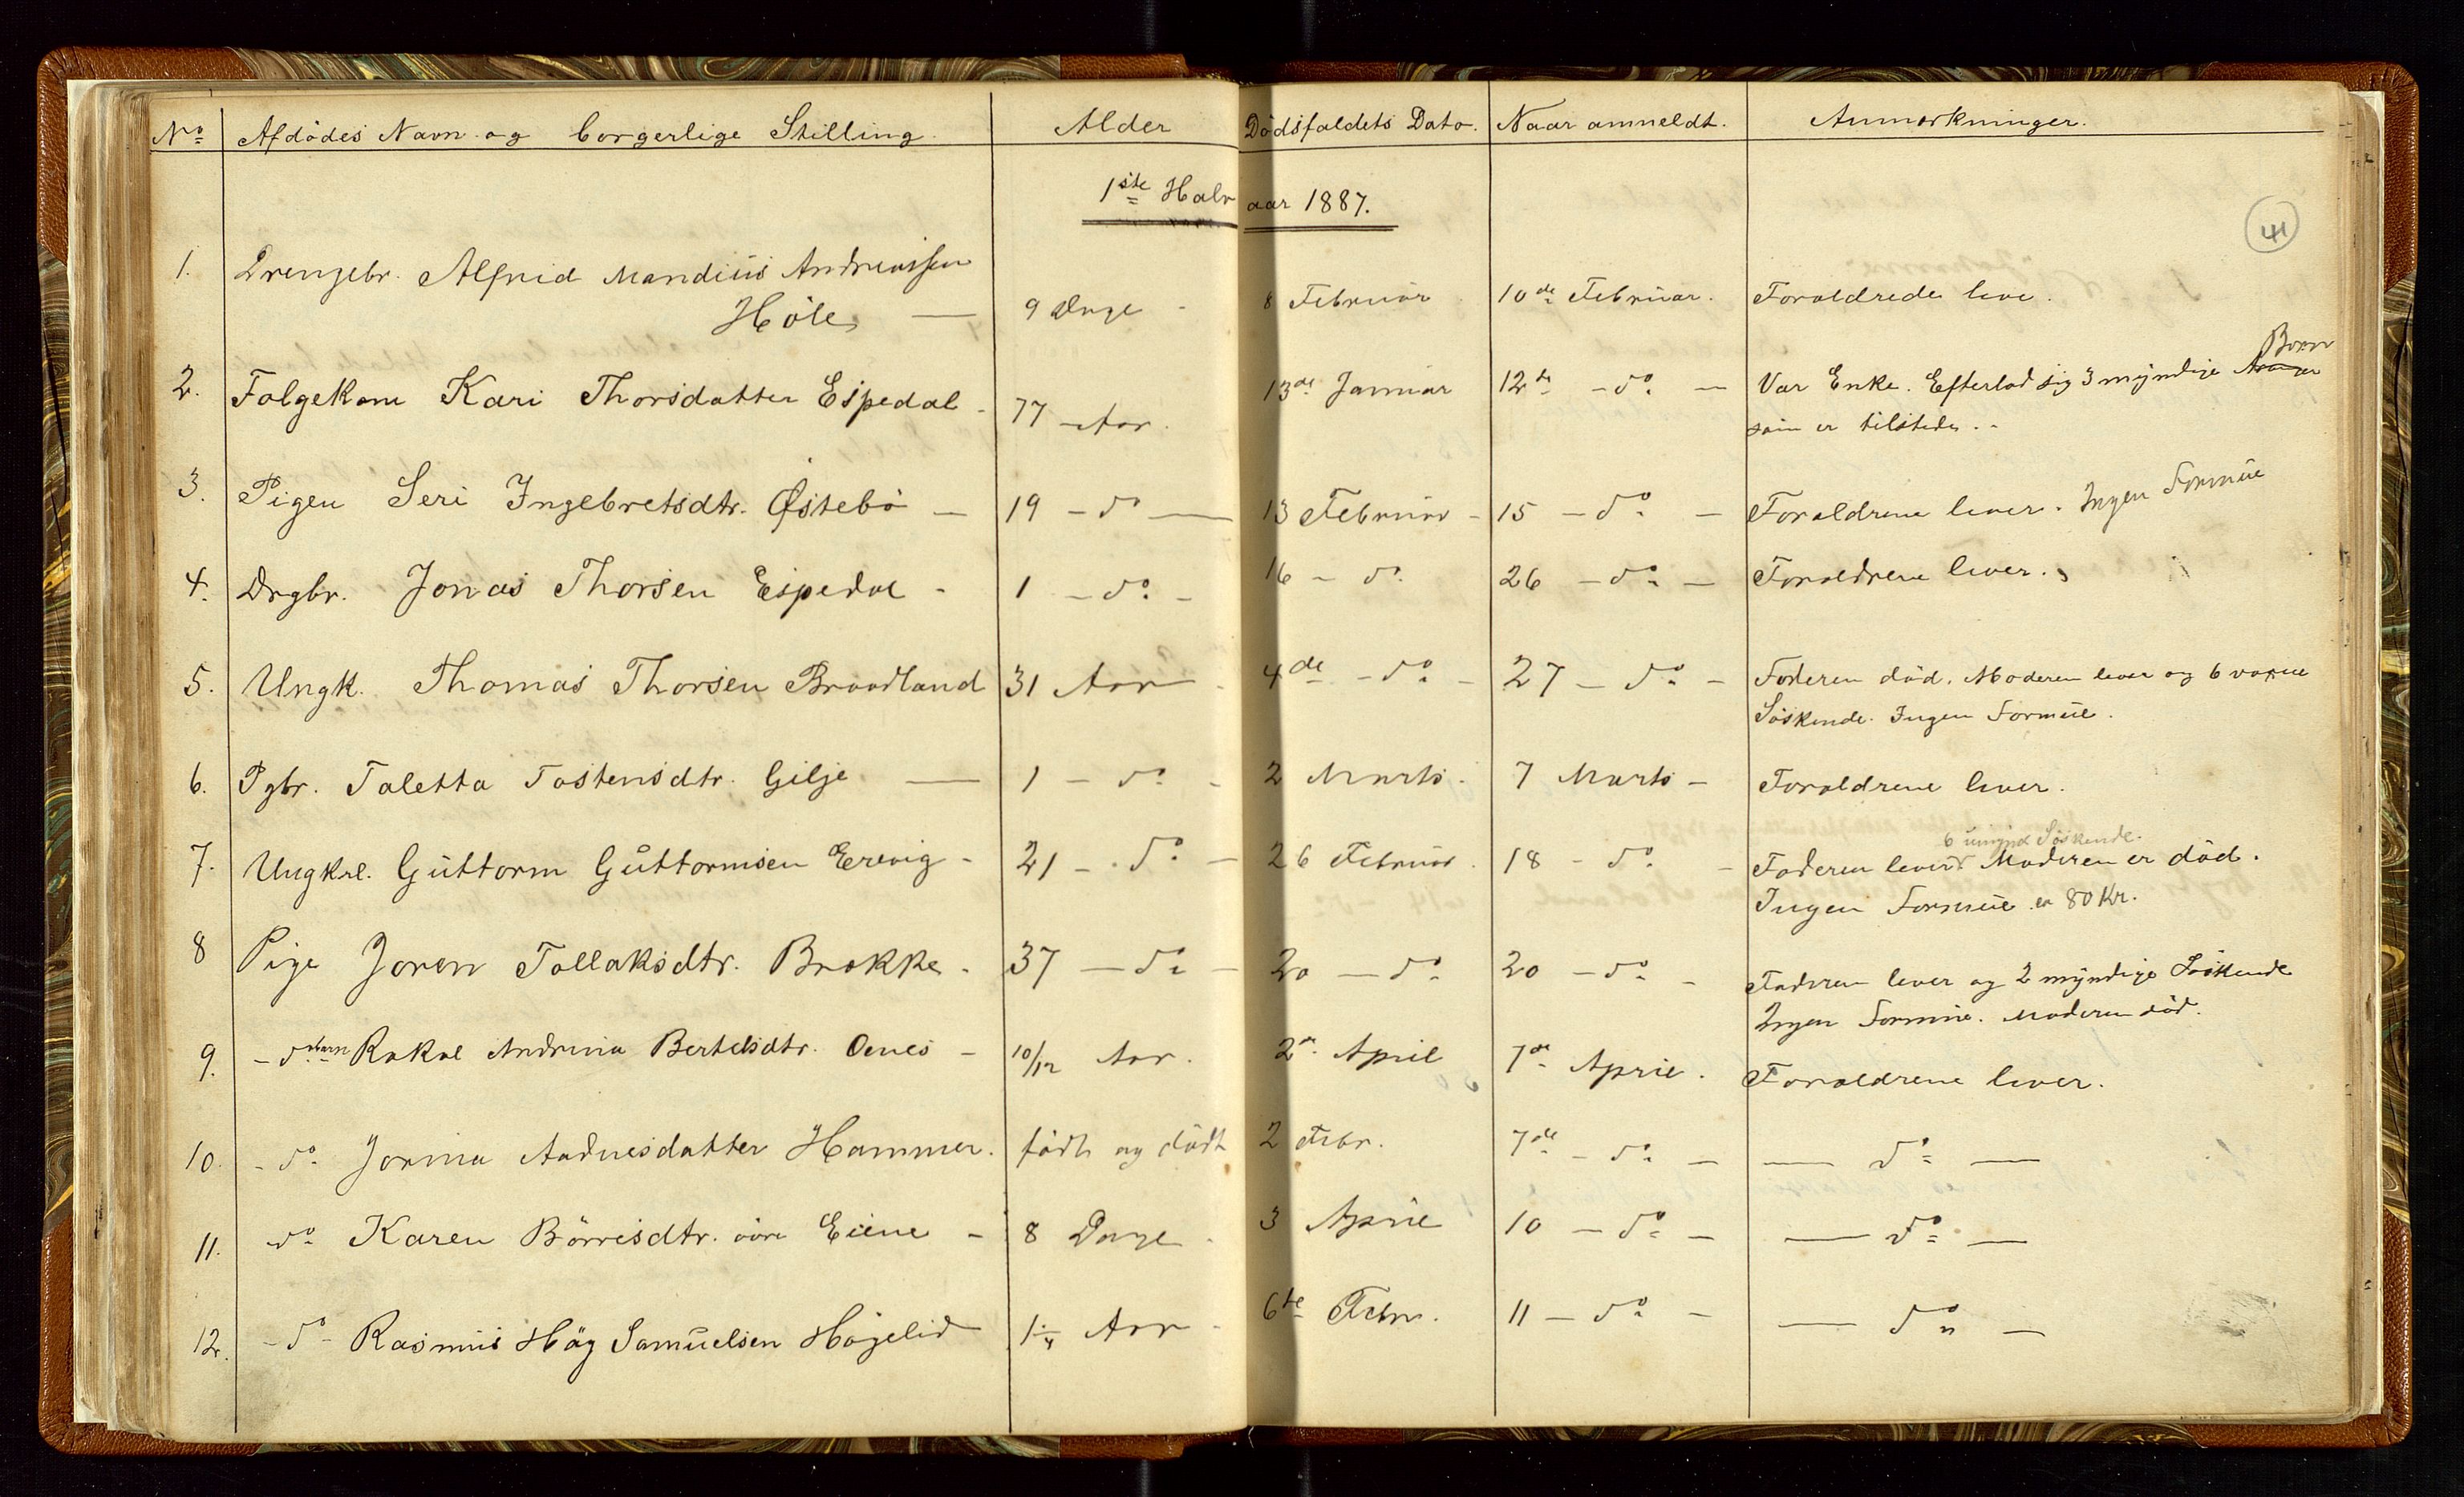 No Afdødes Navn og borgerlige Stilling. Alder Dødsfaldets Dato. Naar anmeldt. Anmærkninger.
1ste Halvaar 1887.
41
1. Drengebr. Alfrid Mandius Andreassen
Høle — 9 Dage - 8 Februar 10de Februar. Forældrede leve.
Børn
2. Folgekone Kari Thorsdatter Espedal - 77 Aar. 13de Januar 12te - do - Var Enke. Efterlod sig 3 myndige
som er tilstede. -
3. Pigen Seri Ingebretsdtr. Østebø - 19 - do - 13 Februar - 15 - do - Forældrene lever. Ingen Formue
4. Drgbr. Jonas Thorsen Espedal - 1 - do - 16 - do 26 - do - Forældrene lever.
5. Ungk. Thomas Thorsen Braadland 31 Aar - 4de - do - 27 - do - Faderen død. Moderen lever og 6 voxne
Søskende. Ingen Formue.
6. Pgbr. Taletta Tostensdtr. Gilje — 1 - do - 2 Marts. 7 Marts - Forældrene lever.
6 umynd Søskende.
7. Ungkrl. Guttorm Guttormsen Erevig - 21 - do - 26 Februar. 18 - do - Faderen lever Moderen er død.
Ingen Formue er 80 Kr.
8 Pige Joren Tollaksdtr. Brekke - 37 - do - 20 - do 20 - do - Faderen lever og 2 myndige Søskende
Ingen Formue. Moderen død.
9. - do barn Rakel Andrina Bertelsdtr. Oenes - 10/12 Aar. 2de April 7de April. Forældrene lever.
10. - do Jorina Aadnesdatter Hammer. født og død 2 Febr. 7de - do - — do —
11. do Karen Børresdtr. øvre Eiene - 8 Dage - 3 April 10 - do - — do —
12. - do - Rasmus Høg Samuelsen Høgelid 1 1/4 Aar - 6te Febr. 11 - do - — do —